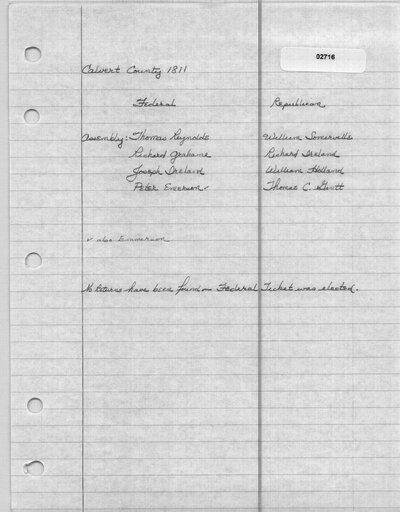 02716
Calvert County 1811
Federal Republican
Assembly: Thomas Reynolds William Somerville
Richard Grahame Richard Ireland
Joseph Ireland William Holland
Peter Emerson ✓ Thomas C. Gantt
✓ also Emmerson
No returns have been found — Federal Ticket was elected.